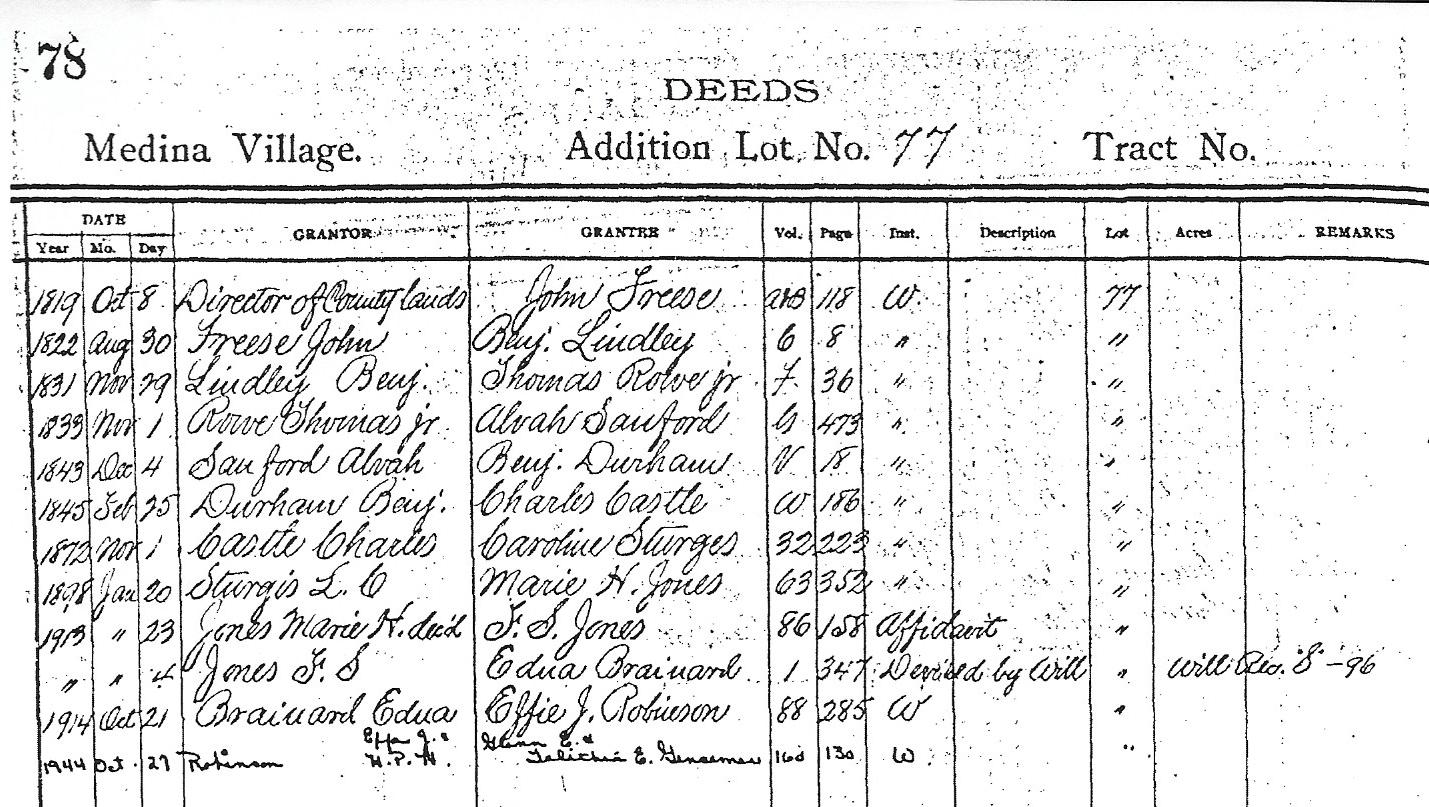 78
DEEDS
Medina Village. Addition Lot No. 77 Tract No.
DATE
Year Mo. Day GRANTOR GRANTEE Vol. Page Inst. Description Lot Acres REMARKS
1819 Oct 8 Director of County lands John Freese 118 W. 77
1822 Aug 30 Freese John Benj. Lindley 6 8 " "
1831 Nov 29 Lindley Benj. Thomas Rowe jr. 36 " "
1833 Nov 1 Rowe Thomas jr. Alvah Sanford G 473 " "
1843 Dec 4 Sanford Alvah Benj. Durham V 18 " "
1845 Feb 25 Durham Benj. Charles Castle W 186 " "
1872 Nov 1 Castle Charles Caroline Sturges 32 223 " "
1898 Jan 20 Sturgis L. C Marie H. Jones 63 352 " "
1913 " 23 Jones Marie H. dec'd F. S. Jones 86 158 Affidavit "
" " 4 Jones F. S Edna Brainard 1 347 Devised by Will " Will Rec. "S" - 96
1914 Oct 21 Brainard Edna Effie J. Robinson 88 285 W "
Effa J. & Glenn E. &
1944 Oct. 27 Robinson H. P. H. E. 130 W. "